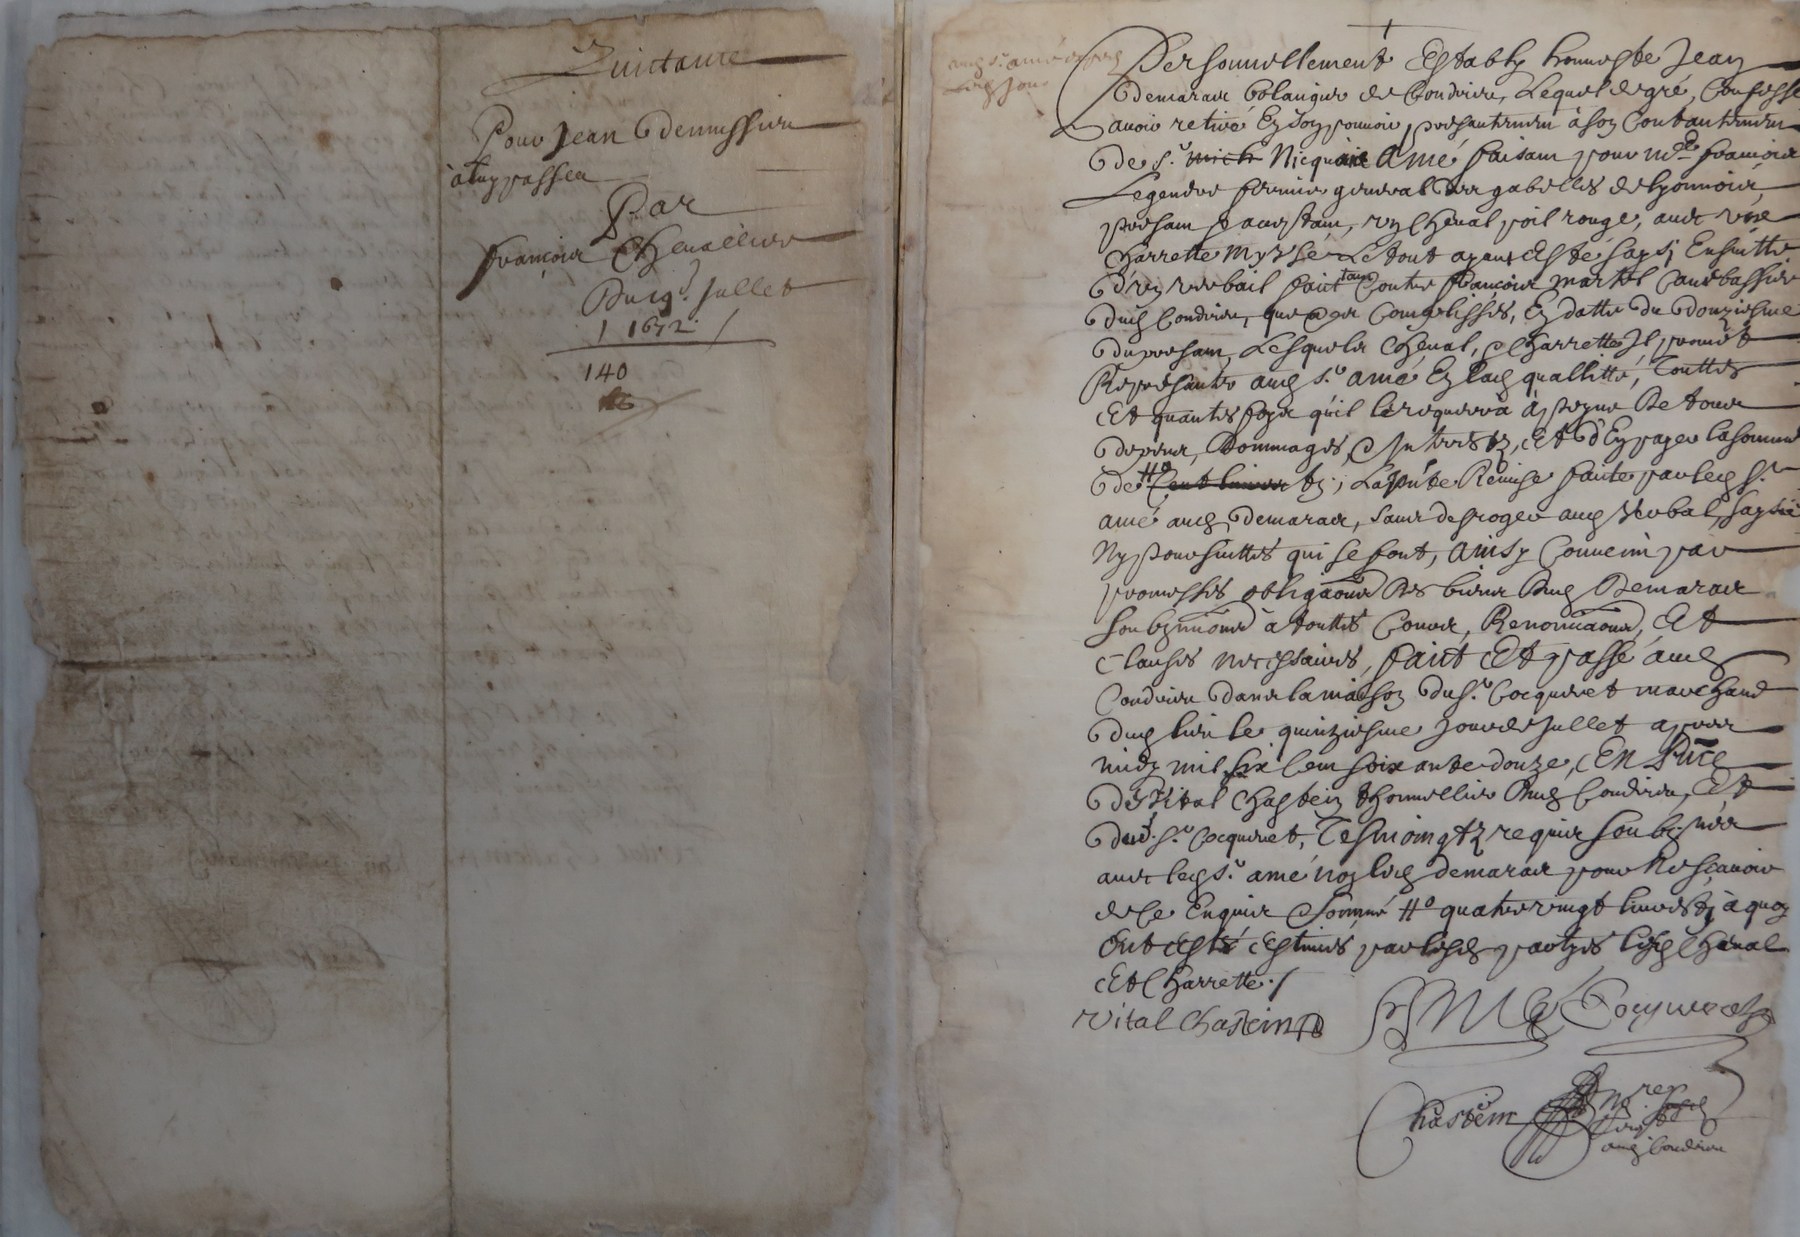 Quictance
Pour Jean Demussieu
à luy passée
Par
François Chevallier
Du 19e Jullet
1672
140
aud s.r amé expedié
led jour
Personnellement Estably honneste Jean
Demarais Bolanger de Condrieu, Lequel de gré, Confesse
avoir retiré En son pouvoir, presantement à son Contantement
De s.r Nicquaise Amé faisant pour m.e françois
Legendre fermier general des gabelles de Lyonnois
presant & acceptant, un Cheval poil rouge, avec une
Charrette Le tout ayant Esté saysj Ensuitte
D'un verbail faict tant Contre françois martel
Dud Condrieu, que Complisses, En datte Du Douziesme
Du presant, Lesquels Cheval, & Charrette Il promet
Represanter aud s.r amé En lad quallitté, Touttes
Et quantes foys qu'il le requerra à peyne De tous
Depens, Dommages, & Interestz, Et D'En payer la somme
De # tz, La p.nte Remise faite par led s.r
amé aud Demarais, sans desroger aud Verbal, saysie
Ny poursuittes qui se font, Ainsy Convenu par
promesses obligaõns Des biens Dud Demarais
soubzmiõns à touttes Cours, Renonciaõns, Et
Clauses necessaires, faict Et passé aud
Condrieu Dans la maison Du s.r Cocqueret marchand
Dud lieu le quinziesme Jour de Jullet apres
midy mil six Cent soixante douze, En p.nce
De Vital Chastein thonnellier Dud Condrieu, Et
Dud s.r Cocqueret, Tesmoingtz requis soubz.nés
avec led s.r amé non led demarais pour Ne sçavoir
de Ce Enquis & sommé # quatre vingt livres tz à quoy
Ont Esté Estimés par lesd partyes lesd Cheval
Et Charrette ./
Vital Chastein
Amé Cocqueret
Chastein
N.re
aud Condrieu